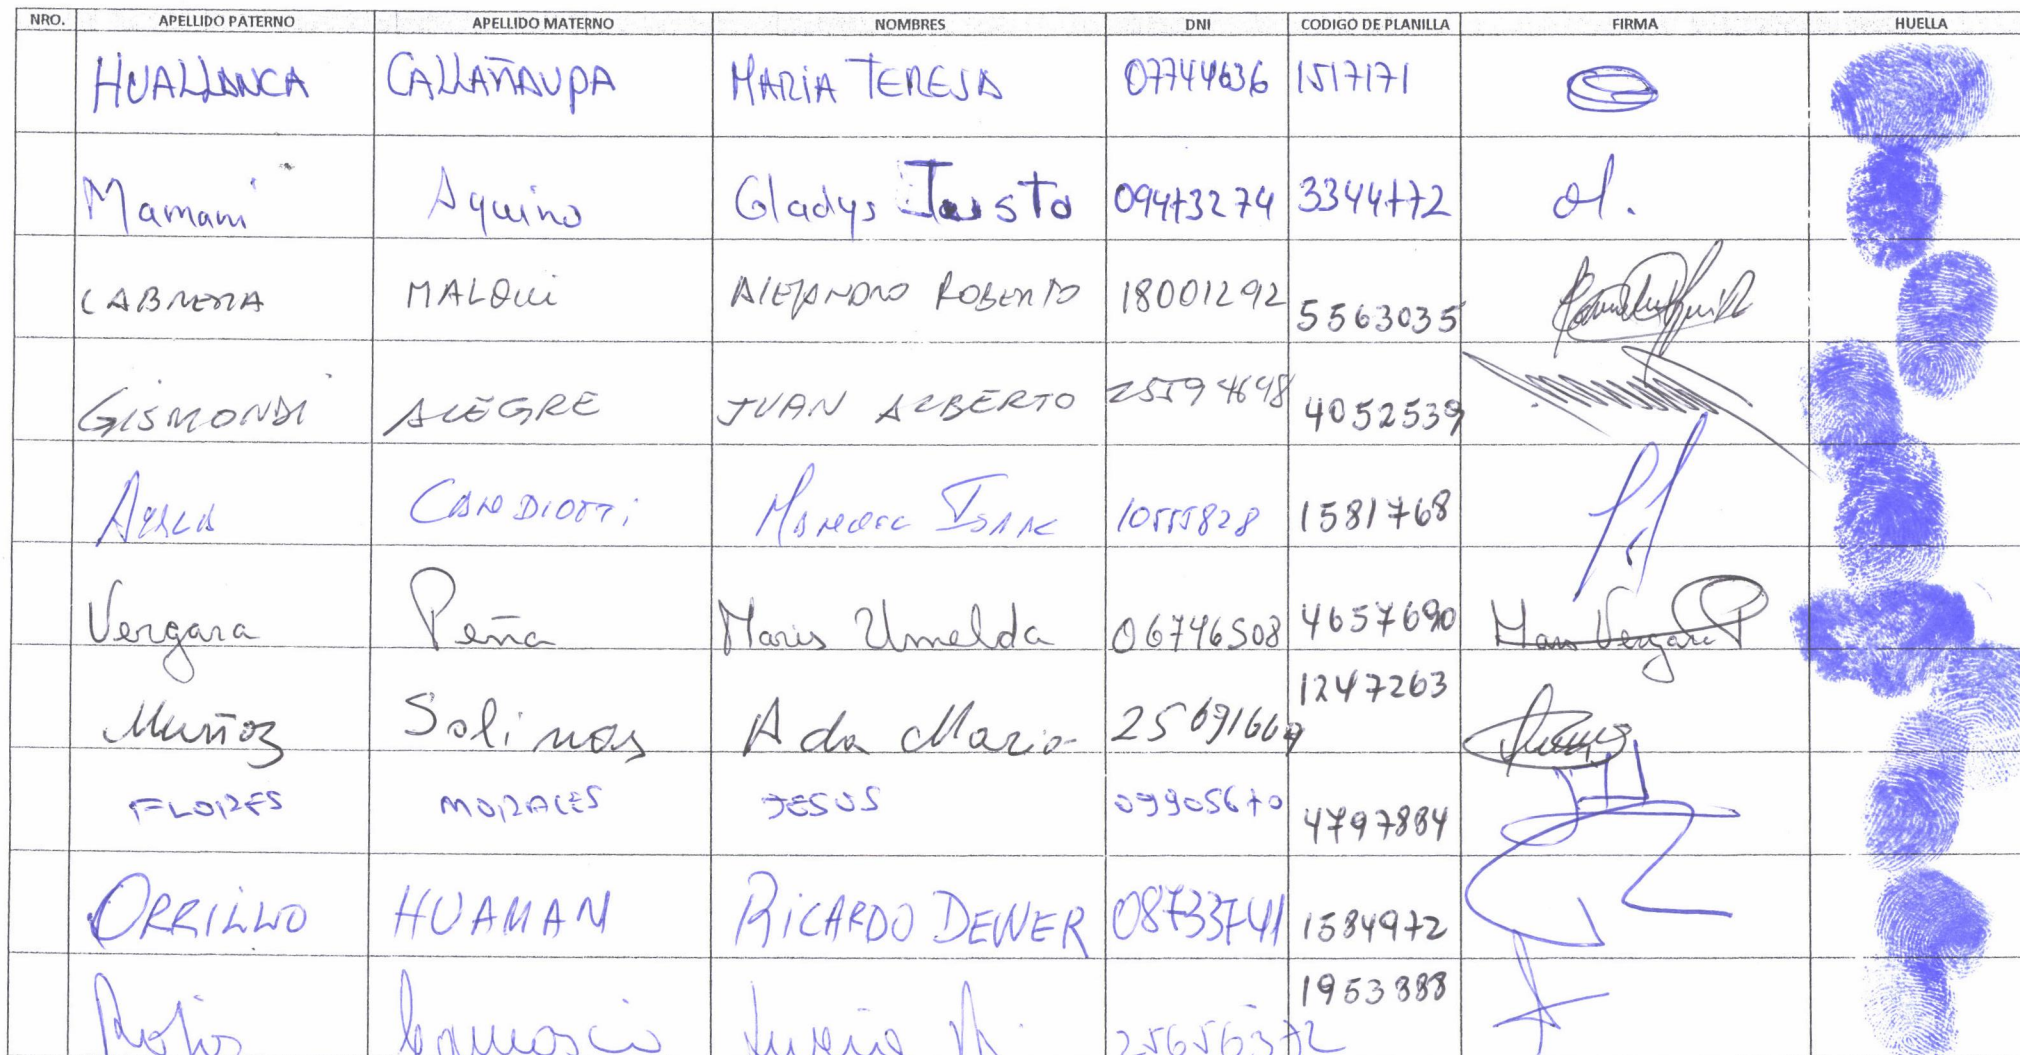 NRO. APELLIDO PATERNO APELLIDO MATERNO NOMBRES DNI CODIGO DE PLANILLA FIRMA HUELLA
HUALLANCA CALLAÑAUPA MARIA TERESA 07744636 1517171
Mamani Aquino Gladys Justo 09473274 3344772
CABRERA MALQUI ALEJANDRO ROBERTO 18001292 5563035
GISMONDI ALEGRE JUAN ALBERTO 25594648 4052539
AYALA CANDIOTTI ISAAC 10555828 1581768
Vergara Peña Maris Umelda 06746508 4657690
Muñoz Salinas Ada Maria 1247263
FLORES MORALES JESUS 09905670 4797884
ORRILLO HUAMAN RICARDO DEWER 08733741 1584972
Rojas 1953888